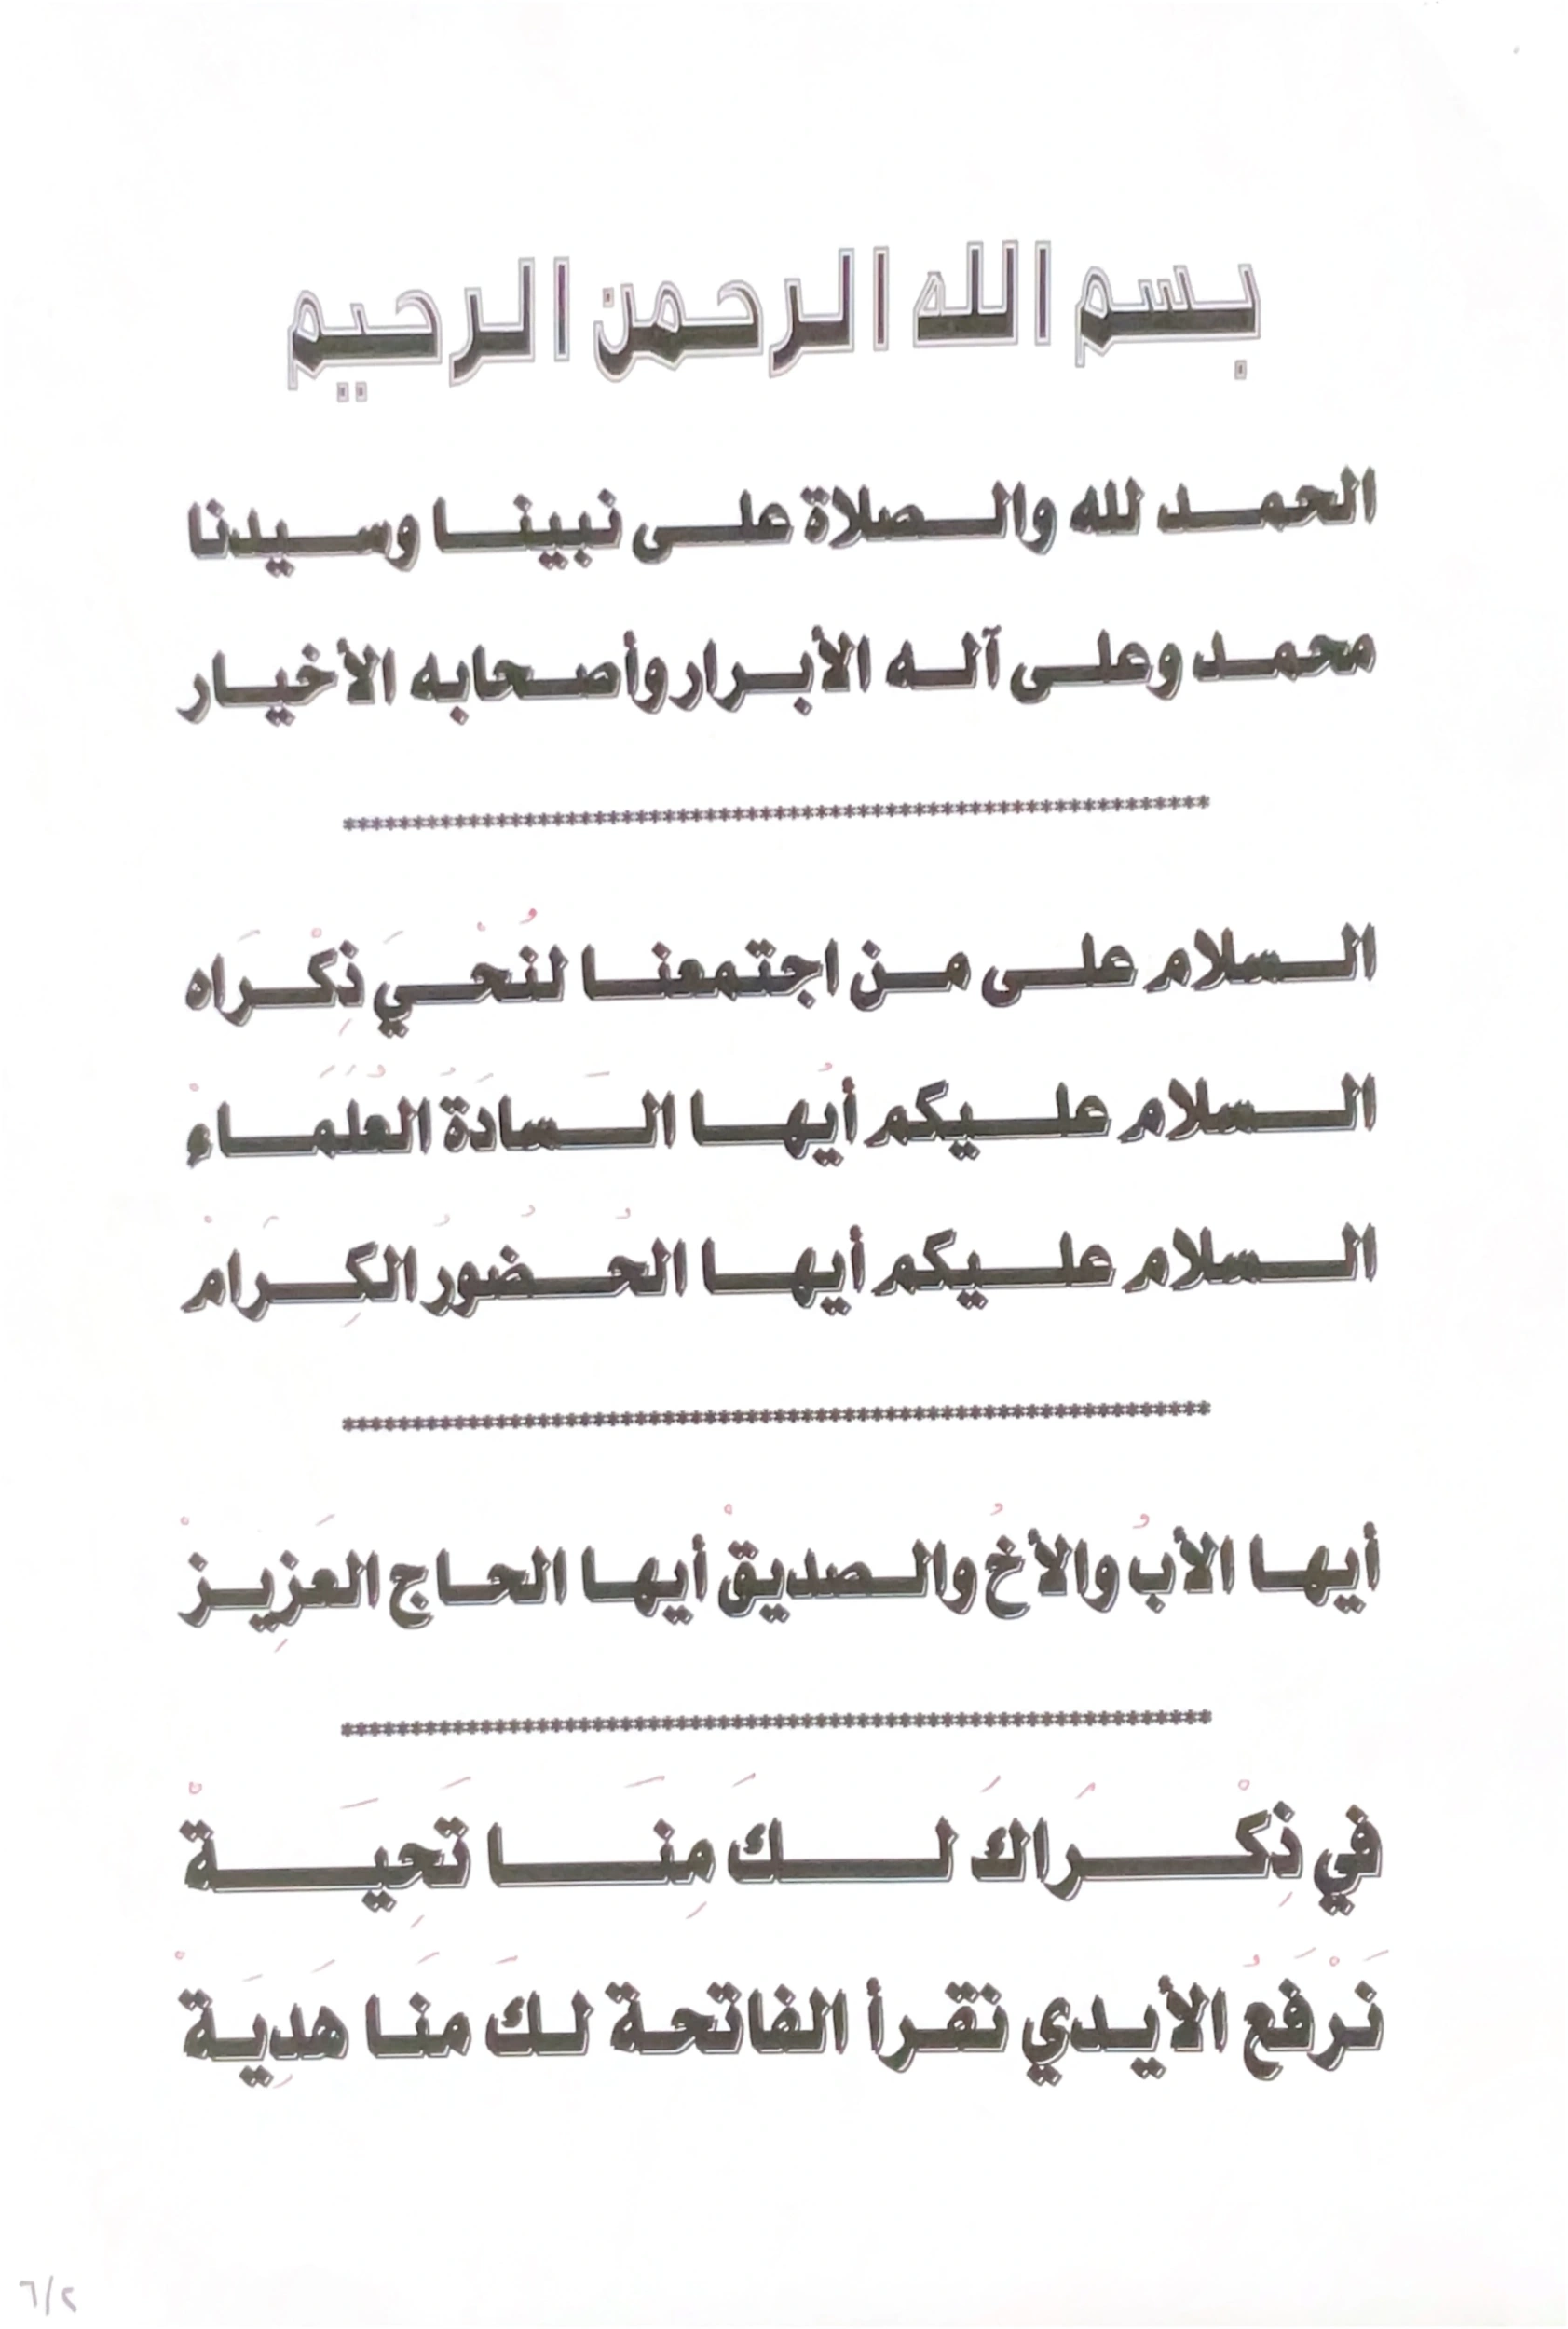 بسم الله الرحمن الرحيم
الحمد لله والصلاة على نبينا وسيدنا
محمد وعلى آله الأبرار وأصحابه الأخيار
************************************************************
السلام على من اجتمعنا لنُحْيَ ذِكْرَاه
السلام عليكم أيُها السَادَةُ العُلَمَاءْ
السلام عليكم أيها الحُضُورُ الكِرَامْ
************************************************************
أيها الأبُ والأخُ والصديقْ أيها الحاج العَزِيزْ
************************************************************
في ذِكْرَاكَ لَكَ مِنَا تَحِيَةْ
نَرْفَعُ الأيدي نقرأ الفاتحة لكَ منَا هَدِيَةْ
٦/٢